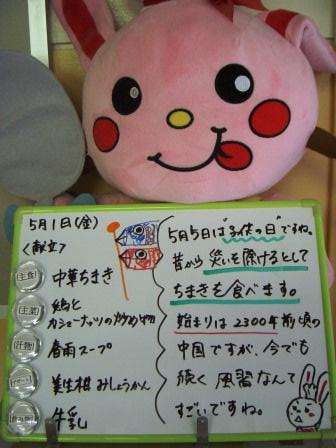 5月1日(金)
〈献立〉
主食
中華ちまき
主菜
鶏と
カシューナッツの炒め物
汁物
春雨スープ
デザート
美生柑 みしょうかん
飲み物
牛乳
5月5日は"子供の日"ですね。
昔から 災いを除けるとして
ちまきを食べます。
始まりは2300年前頃の
中国ですが、今でも
続く風習なんて
すごいですね。